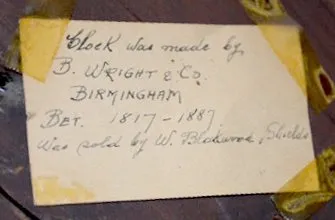 Clock was made by
B. WRIGHT & Co.
BIRMINGHAM
BET. 1817 - 1887.
was sold by W. Blakwood, Shields